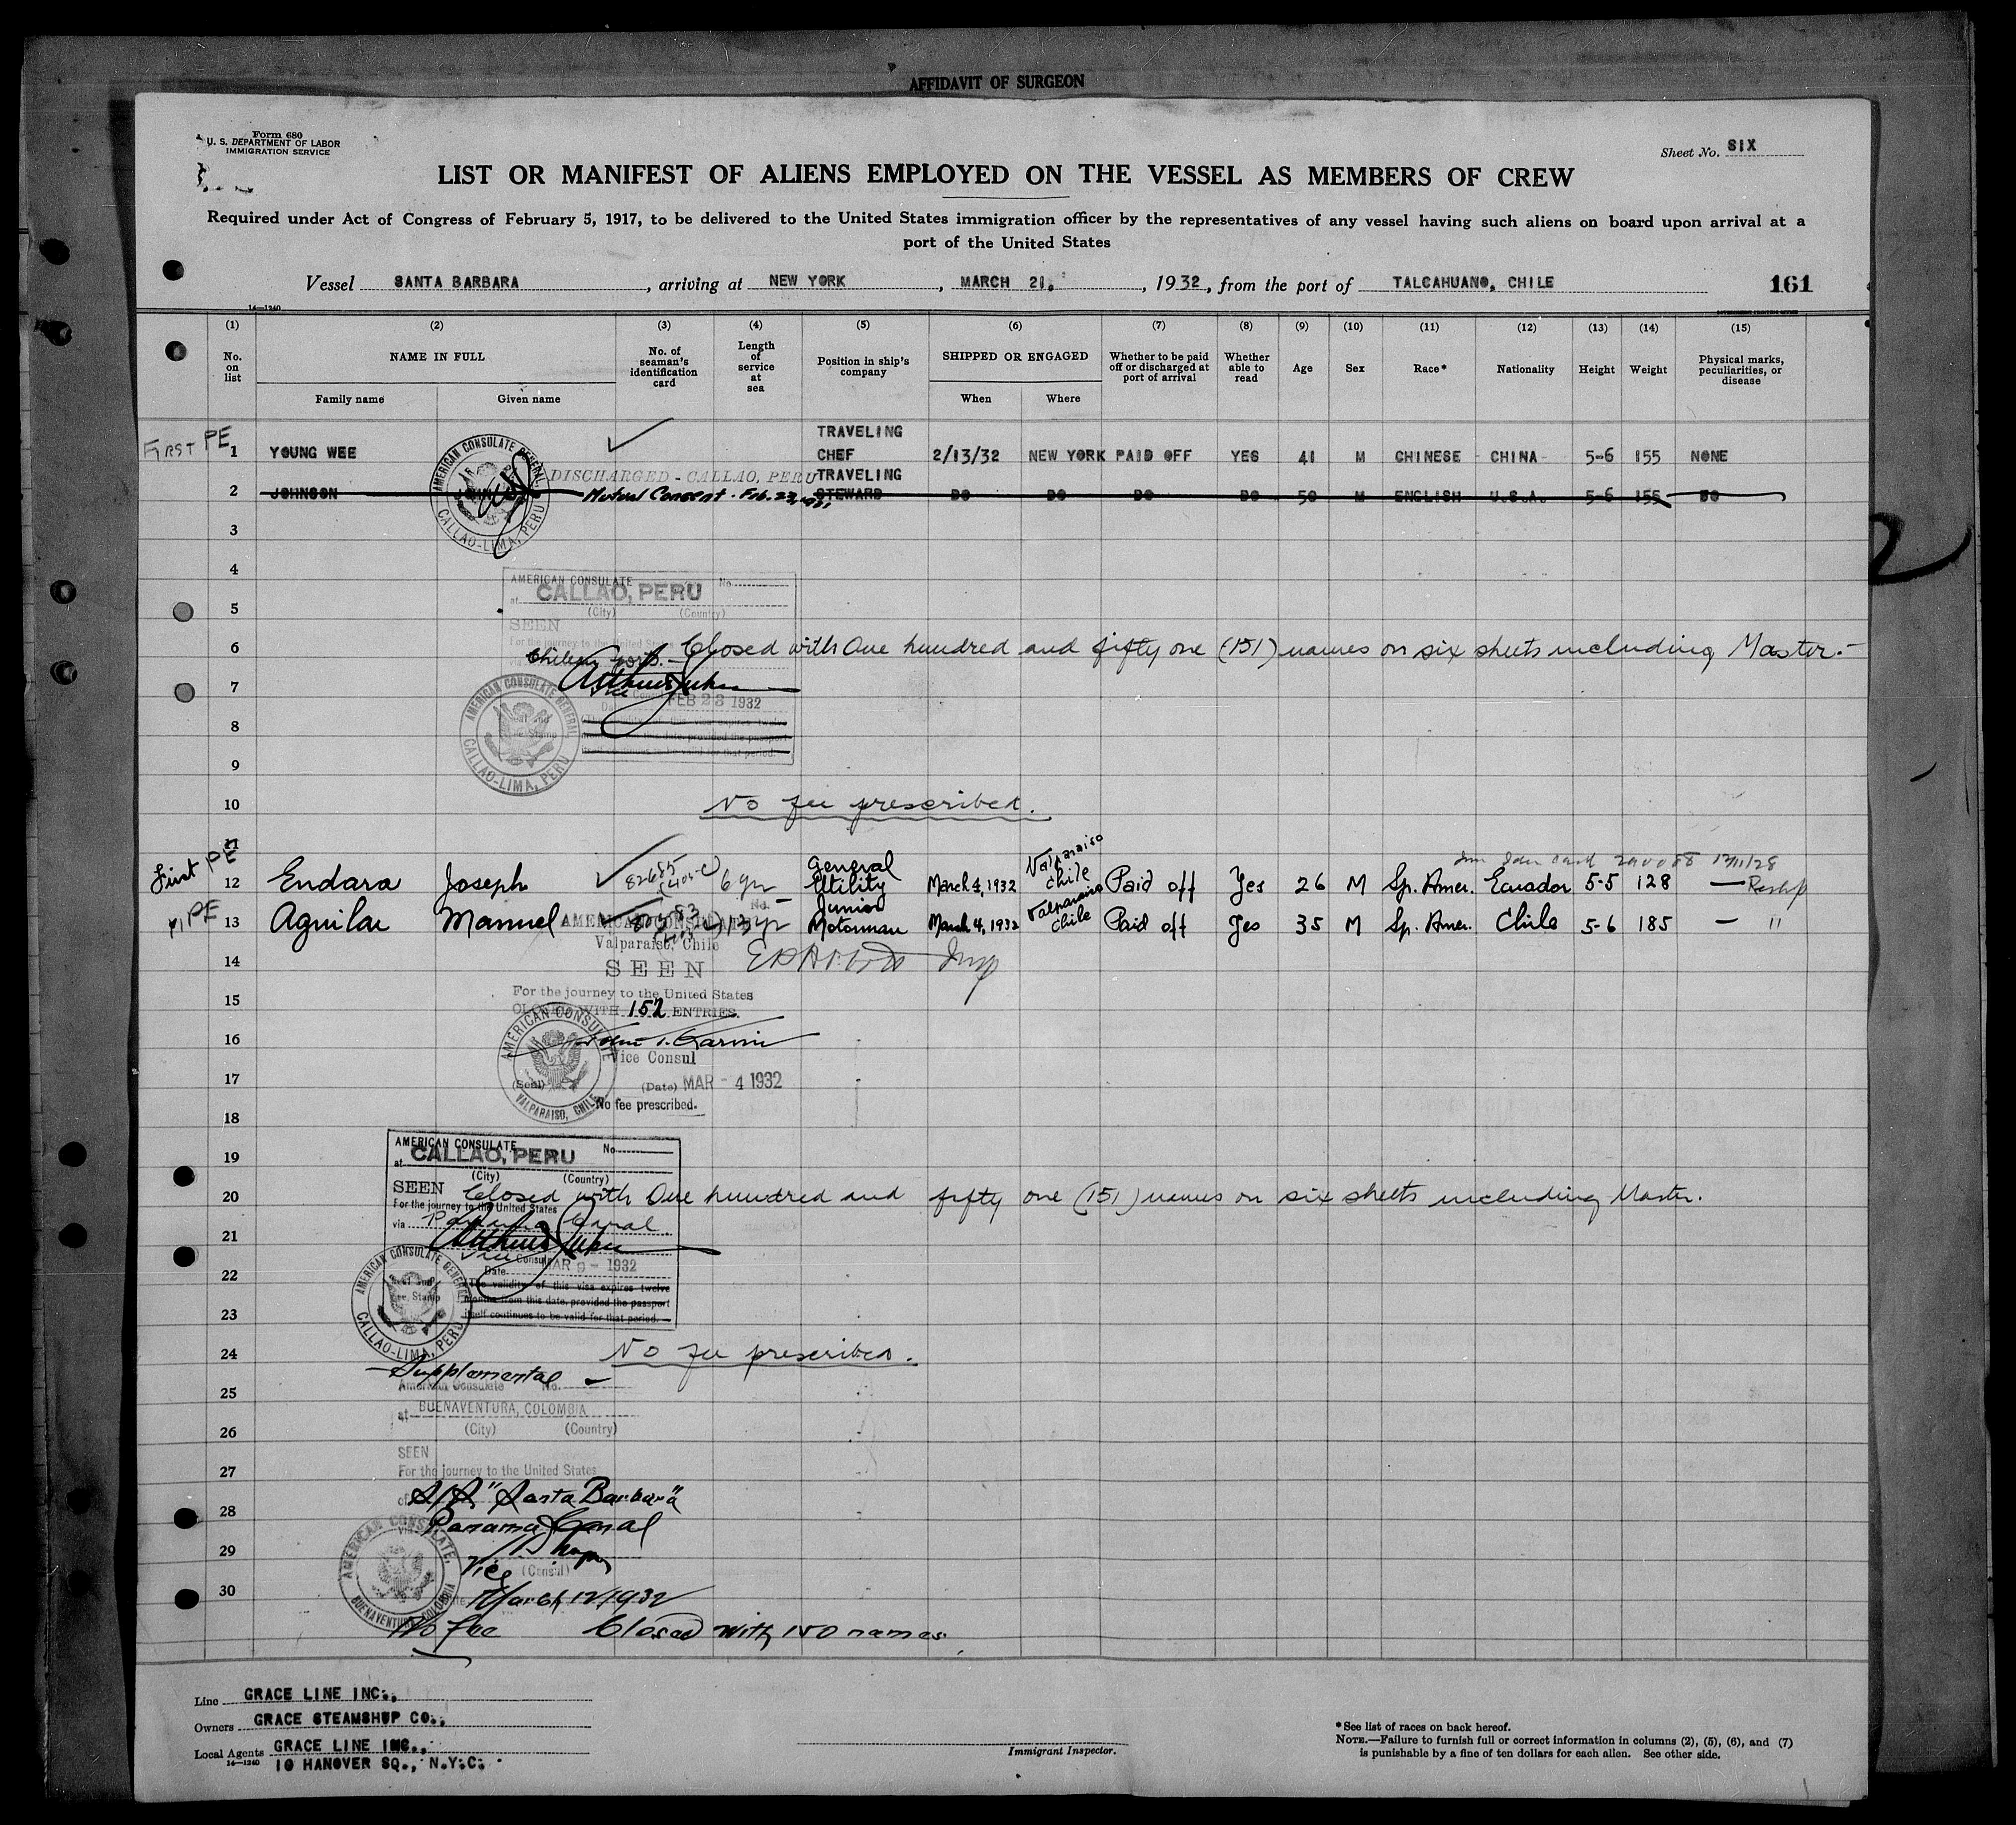 AFFIDAVIT OF SURGEON
Form 680
U. S. DEPARTMENT OF LABOR
IMMIGRATION SERVICE
Sheet No. SIX
LIST OR MANIFEST OF ALIENS EMPLOYED ON THE VESSEL AS MEMBERS OF CREW
Required under Act of Congress of February 5, 1917, to be delivered to the United States immigration officer by the representatives of any vessel having such aliens on board upon arrival at a
port of the United States
Vessel SANTA BARBARA, arriving at NEW YORK, MARCH 21, 1932, from the port of TALCAHUANO, CHILE 161
14—1240
(1) (2) (3) (4) (5) (6) (7) (8) (9) (10) (11) (12) (13) (14) (15)
No. on list
NAME IN FULL
Family name
Given name
No. of seaman's identification card
Length of service at sea
Position in ship's company
SHIPPED OR ENGAGED
When
Where
Whether to be paid off or discharged at port of arrival
Whether able to read
Age
Sex
Race*
Nationality
Height
Weight
Physical marks, peculiarities, or disease
FIRST PE 1 YOUNG WEE TRAVELING CHEF 2/13/32 NEW YORK PAID OFF YES 41 M CHINESE CHINA 5-6 155 NONE
DISCHARGED - CALLAO, PERU
2 JOHNSON JOHN Mutual Consent. Feb. 23, TRAVELING STEWARD DO DO DO DO 50 M ENGLISH U.S.A. 5-6 155 DO
AMERICAN CONSULATE GENERAL
CALLAO-LIMA, PERU
3
4
AMERICAN CONSULATE No.
at CALLAO, PERU
5
(City) (Country)
SEEN
For the journey to the United States
6 Closed with One hundred and fifty one (151) names on six sheets including Master.-
Chilean ports.
7
FEB 23 1932
8
AMERICAN CONSULATE GENERAL
CALLAO-LIMA, PERU
9
10 No fee prescribed.
11
First PE 12 Endara Joseph 82685 6 yr General Utility March 4, 1932 Valparaiso Chile Paid off Yes 26 M Sp. Amer. Ecuador 5-5 128 —
PE 13 Aguilar Manuel 13 yr Junior Motorman March 4, 1932 Valparaiso Chile Paid off Yes 35 M Sp. Amer. Chile 5-6 185 — "
AMERICAN CONSULATE No.
Valparaiso, Chile
14
SEEN
For the journey to the United States
15
CLOSED WITH 152 ENTRIES.
16
Vice Consul
17
(Seal) (Date) MAR - 4 1932
No fee prescribed.
AMERICAN CONSULATE
VALPARAISO, CHILE
18
AMERICAN CONSULATE No.
19
at CALLAO, PERU
(City) (Country)
20 SEEN Closed with One hundred and fifty one (151) names on six sheets including Master.
For the journey to the United States
via Panama Canal
21
Vice Consul
Date MAR 9 - 1932
22
The validity of this visa expires twelve
months from this date, provided the passport
23
itself continues to be valid for that period.
AMERICAN CONSULATE GENERAL
CALLAO-LIMA, PERU
24 No fee prescribed.
Supplemental
25
American Consulate No.
at BUENAVENTURA, COLOMBIA
26
(City) (Country)
SEEN
27
For the journey to the United States
of S/S "Santa Barbara"
28
via Panama Canal
29
Vice (Consul)
30
March 12/1932
AMERICAN CONSULATE,
BUENAVENTURA, COLOMBIA
No fee Closed with 150 names
Line GRACE LINE INC.,
Owners GRACE STEAMSHUP CO.,
Local Agents GRACE LINE INC.,
14—1240 10 HANOVER SQ., N.Y.C.
Immigrant Inspector.
*See list of races on back hereof.
NOTE.—Failure to furnish full or correct information in columns (2), (5), (6), and (7)
is punishable by a fine of ten dollars for each alien. See other side.